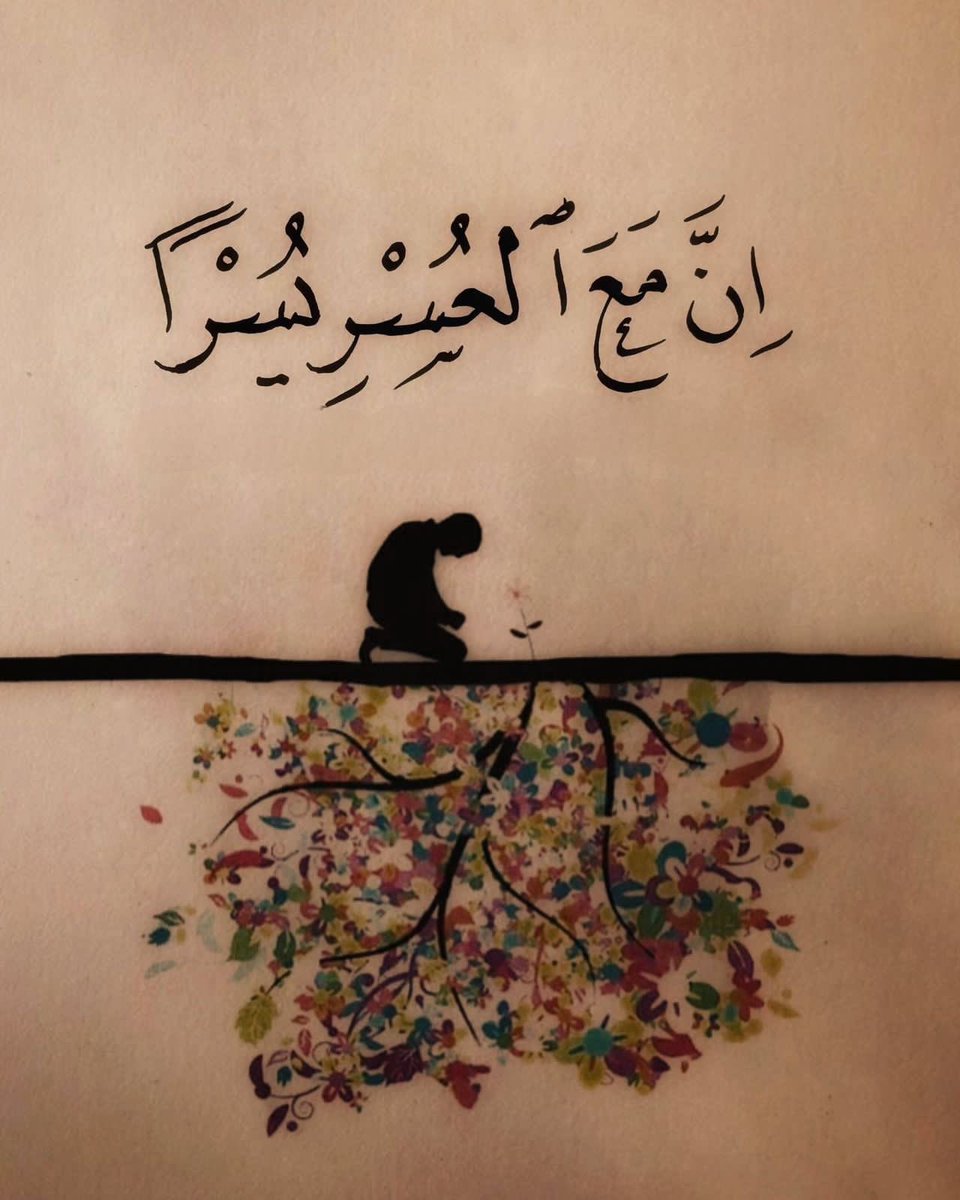 اِنَّ مَعَ ٱلْعُسْرِ يُسْرًا